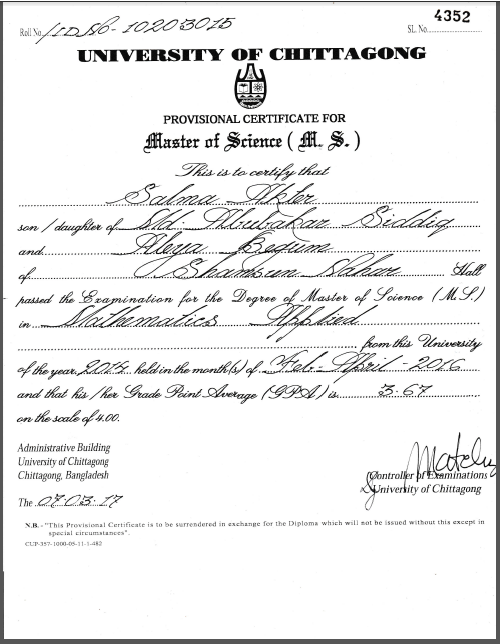 Roll No./ID No- 10203015
SL. No. 4352
UNIVERSITY OF CHITTAGONG
PROVISIONAL CERTIFICATE FOR
Master of Science ( M. S. )
This is to certify that
Salma Akter
son / daughter of Md. Abubakar Siddiq
and Aleya Begum
of Shamsun Nahar Hall
passed the Examination for the Degree of Master of Science (M.S.)
in Mathematics Applied
from this University
of the year, 2014 held in the month(s) of Feb-April - 2016
and that his /her Grade Point Average (GPA) is 3.67
on the scale of 4.00.
Administrative Building
University of Chittagong
Chittagong, Bangladesh
Controller of Examinations
University of Chittagong
The 07.03.17
N.B. - "This Provisional Certificate is to be surrendered in exchange for the Diploma which will not be issued without this except in
special circumstances".
CUP-357-1000-05-11-1-482